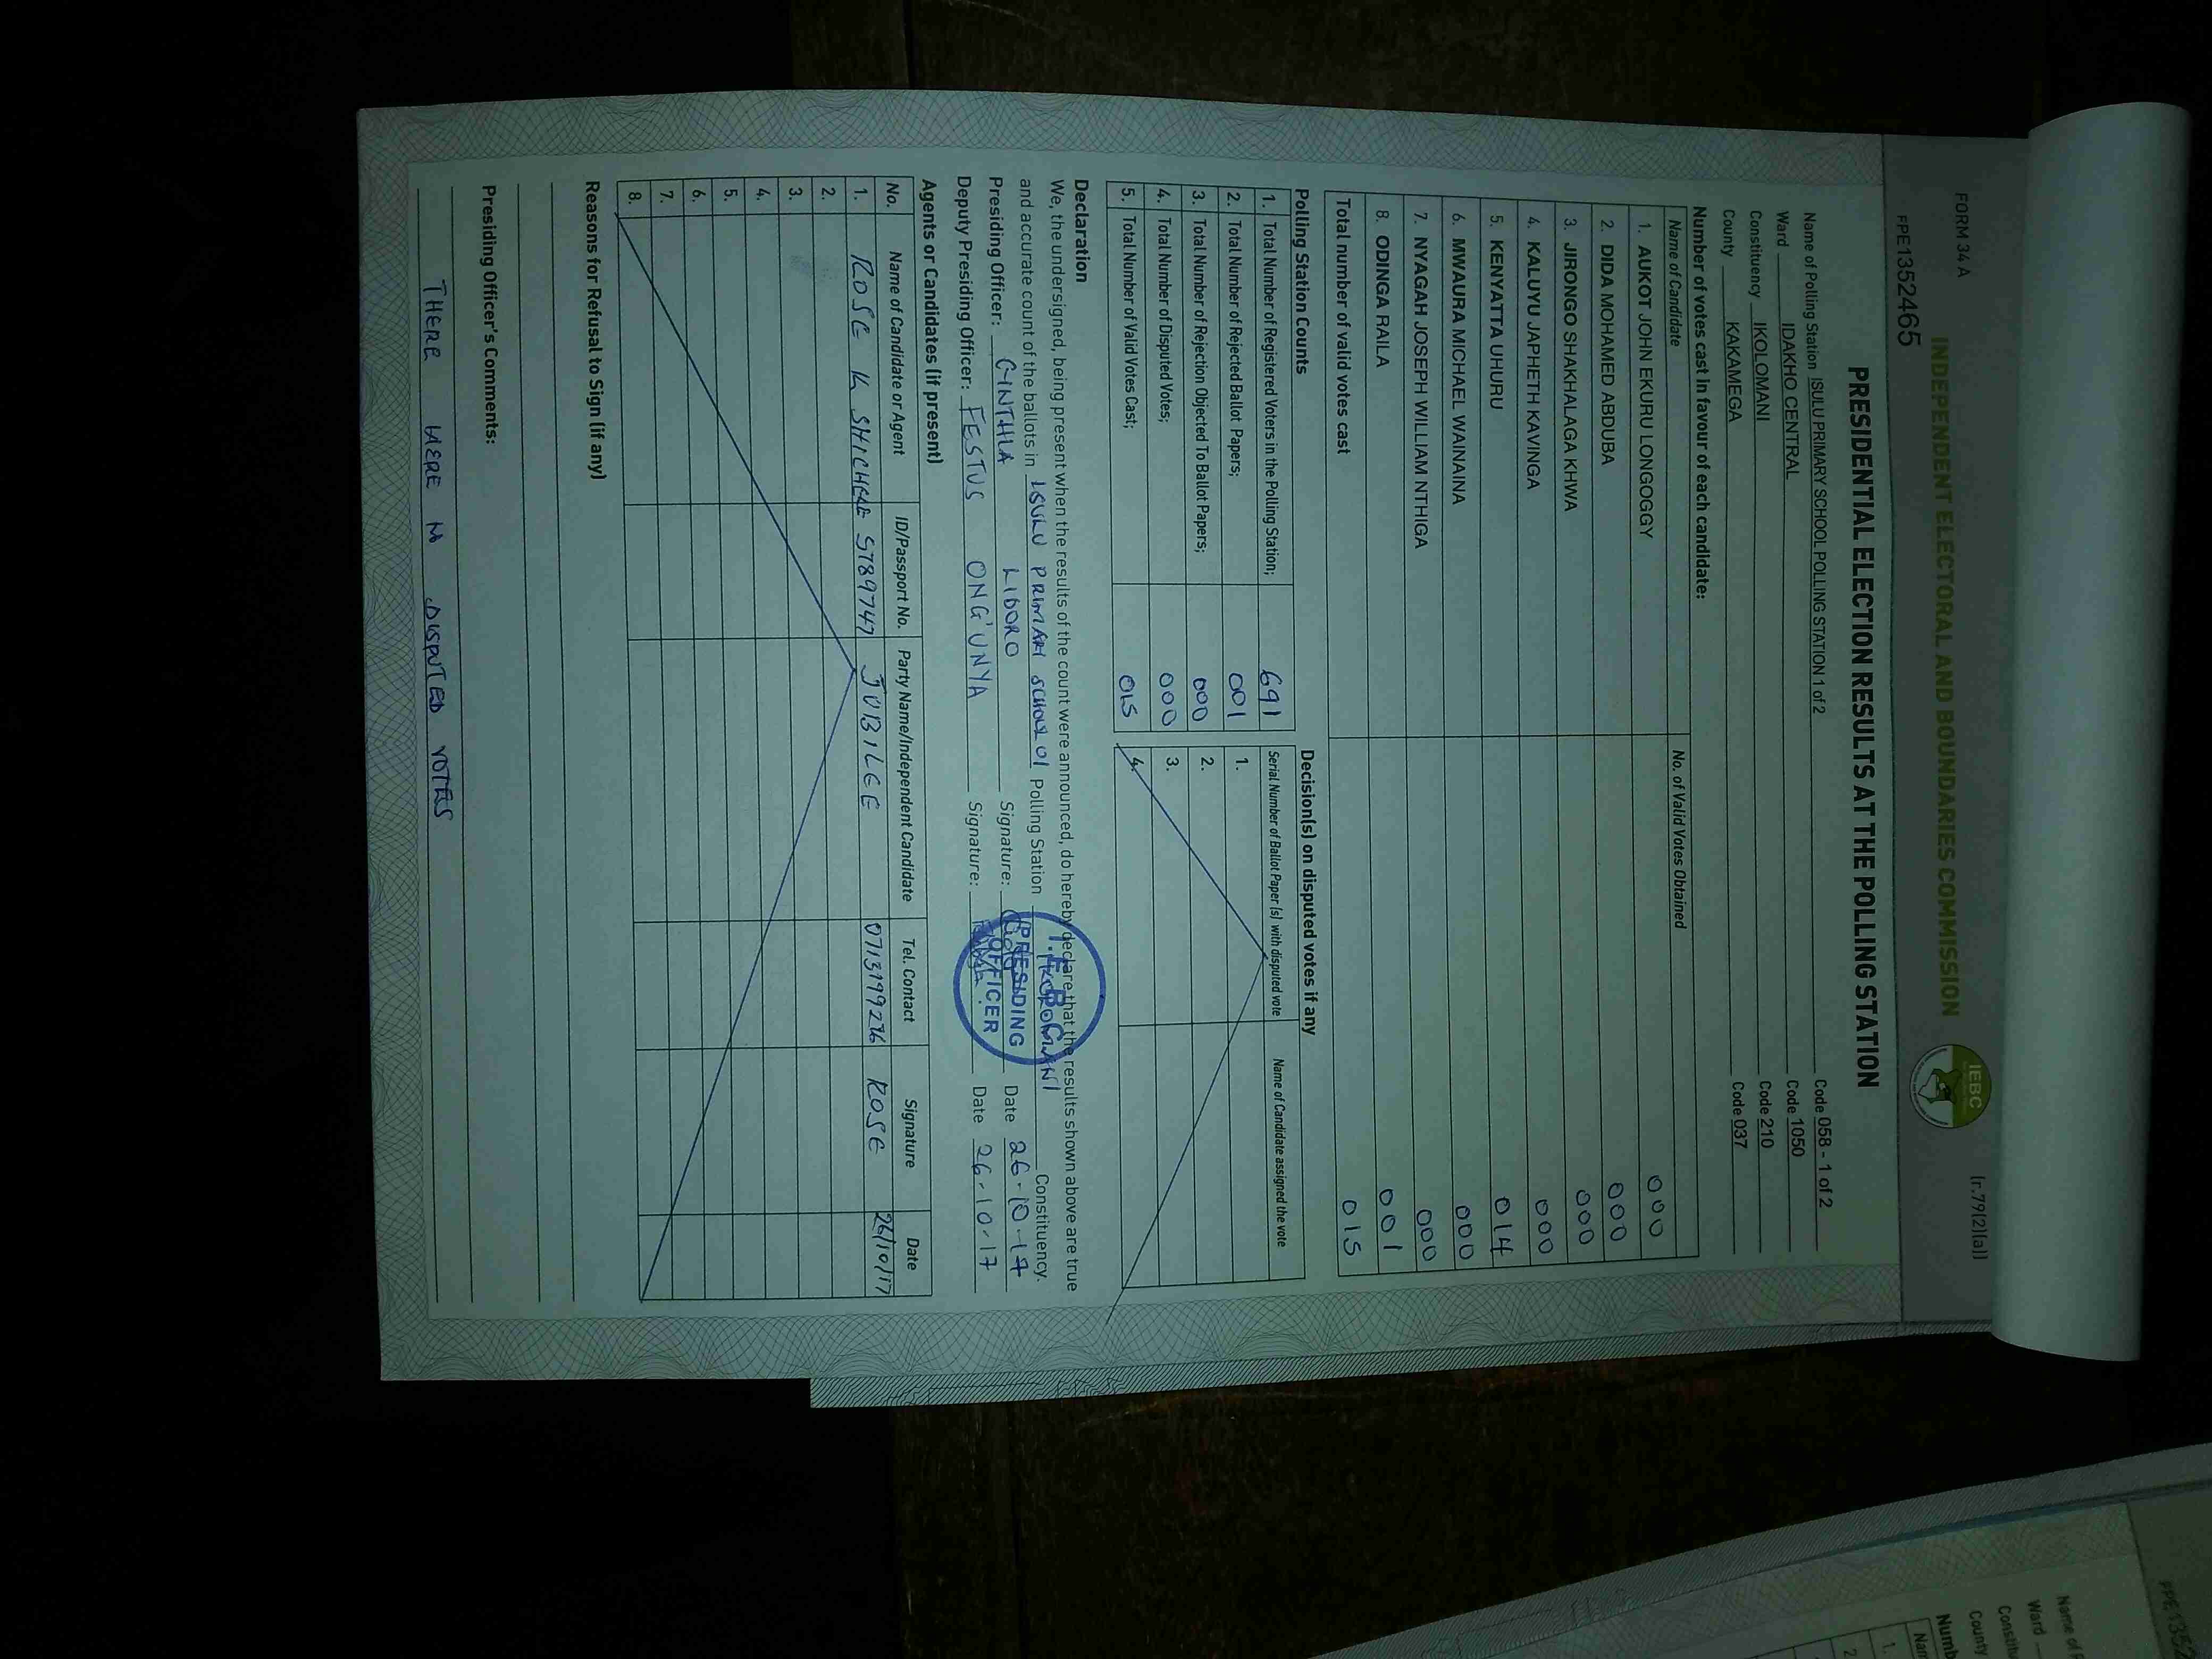 FORM 34A
(r.79(2)(a))
INDEPENDENT ELECTORAL AND BOUNDARIES COMMISSION
IEBC
FPE1352465
PRESIDENTIAL ELECTION RESULTS AT THE POLLING STATION
Name of Polling Station ISULU PRIMARY SCHOOL POLLING STATION 1 of 2 Code 058 - 1 of 2
Ward IDAKHO CENTRAL Code 1050
Constituency IKOLOMANI Code 210
County KAKAMEGA Code 037
Number of votes cast in favour of each candidate:
Name of Candidate No. of Valid Votes Obtained
1. AUKOT JOHN EKURU LONGOGGY 000
2. DIDA MOHAMED ABDUBA 000
3. JIRONGO SHAKHALAGA KHWA 000
4. KALUYU JAPHETH KAVINGA 000
5. KENYATTA UHURU 014
6. MWAURA MICHAEL WAINAINA 000
7. NYAGAH JOSEPH WILLIAM NTHIGA 000
8. ODINGA RAILA 001
Total number of valid votes cast 015
Polling Station Counts
1. Total Number of Registered Voters in the Polling Station; 691
2. Total Number of Rejected Ballot Papers; 001
3. Total Number of Rejection Objected To Ballot Papers; 000
4. Total Number of Disputed Votes; 000
5. Total Number of Valid Votes Cast; 015
Decision(s) on disputed votes if any
Serial Number of Ballot Paper (s) with disputed vote Name of Candidate assigned the vote
1.
2.
3.
4.
Declaration
We, the undersigned, being present when the results of the count were announced, do hereby declare that the results shown above are true
and accurate count of the ballots in ISULU PRIMARY SCHOOL 01 Polling Station IKOLOMANI Constituency.
Presiding Officer: CINTHIA LIDORO Signature: Date 26-10-17
Deputy Presiding Officer: FESTUS ONG'UNYA Signature: Date 26-10-17
I.E.B.C
PRESIDING
OFFICER
Agents or Candidates (if present)
No. Name of Candidate or Agent ID/Passport No. Party Name/Independent Candidate Tel. Contact Signature Date
1. ROSE K SHICHERE 5789747 JUBILEE 0713199276 ROSE 26/10/17
2.
3.
4.
5.
6.
7.
8.
Reasons for Refusal to Sign (if any)
Presiding Officer's Comments:
THERE WERE NO DISPUTED VOTES
FPE1352
Name of P
Ward
Constitu
County
Numb
Nam
1.
2